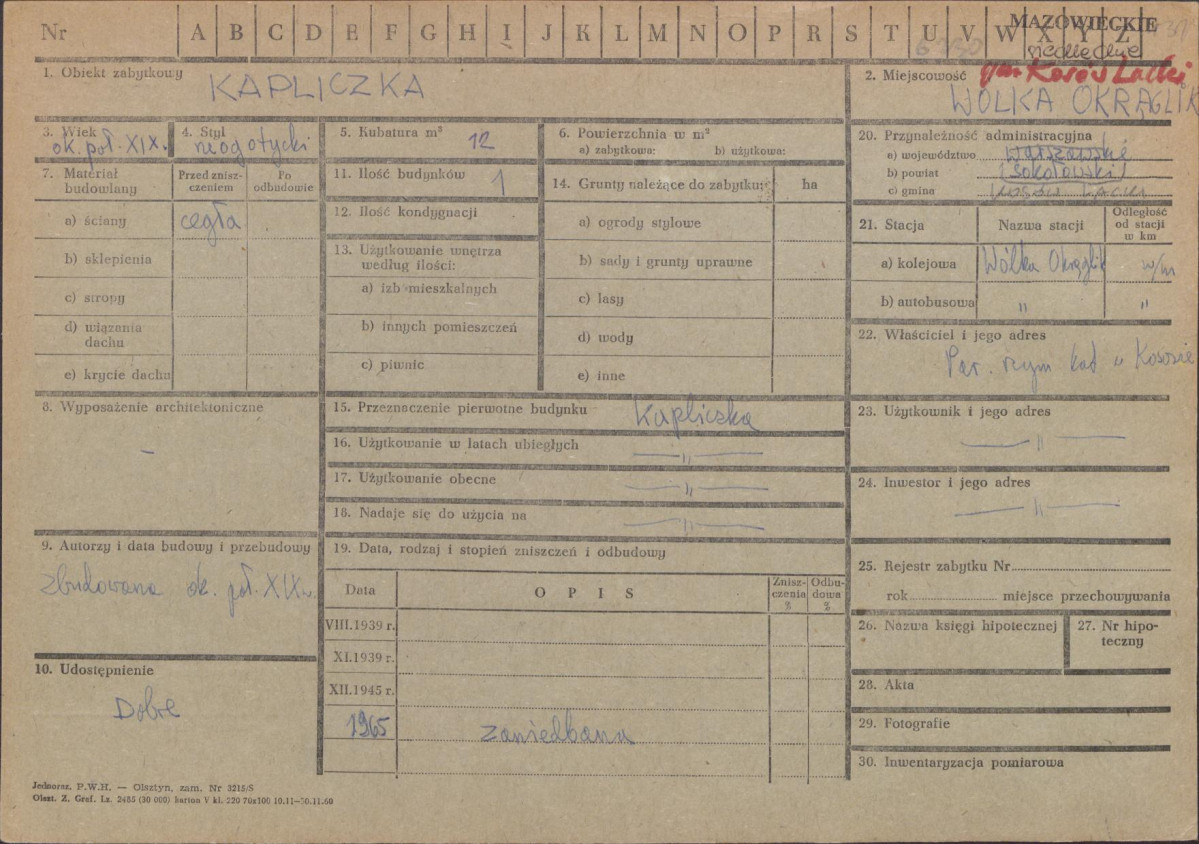 Nr A B C D E F G H I J K L M N O P R S T U V W X Y Z
MAZOWIECKIE
siedleckie
gm. Kosów Lacki
1. Obiekt zabytkowy KAPLICZKA
2. Miejscowość WÓLKA OKRĄGLIK
3. Wiek ok. poł. XIX.
4. Styl neogotycki
5. Kubatura m³ 12
6. Powierzchnia w m²
a) zabytkowa: b) użytkowa:
7. Materiał budowlany
Przed zniszczeniem
Po odbudowie
a) ściany cegła
b) sklepienia
c) stropy
d) wiązania dachu
e) krycie dachu
8. Wyposażenie architektoniczne
–
9. Autorzy i data budowy i przebudowy
zbudowana ok. poł. XIX w.
10. Udostępnienie
Dobre
11. Ilość budynków 1
12. Ilość kondygnacji
13. Użytkowanie wnętrza według ilości:
a) izb mieszkalnych
b) innych pomieszczeń
c) piwnic
14. Grunty należące do zabytku: ha
a) ogrody stylowe
b) sady i grunty uprawne
c) lasy
d) wody
e) inne
15. Przeznaczenie pierwotne budynku Kapliczka
16. Użytkowanie w latach ubiegłych —„—
17. Użytkowanie obecne —„—
18. Nadaje się do użycia na —„—
19. Data, rodzaj i stopień zniszczeń i odbudowy
Data OPIS Zniszczenia % Odbudowa %
VIII.1939 r.
XI.1939 r.
XII.1945 r.
1965 zaniedbana
20. Przynależność administracyjna
a) województwo warszawskie
b) powiat (sokołowski)
c) gmina Kosów Lacki
21. Stacja Nazwa stacji Odległość od stacji w km
a) kolejowa Wólka Okrąglik w/m
b) autobusowa „ „
22. Właściciel i jego adres
Par. rzym kat w Kosowie
23. Użytkownik i jego adres
—„—
24. Inwestor i jego adres
—„—
25. Rejestr zabytku Nr
rok miejsce przechowywania
26. Nazwa księgi hipotecznej
27. Nr hipoteczny
28. Akta
29. Fotografie
30. Inwentaryzacja pomiarowa
Jednoraz. P.W.H. — Olsztyn, zam. Nr 3215/S
Olszt. Z. Graf. Lz. 2485 (30 000) karton V kl. 220 70x100 10.11—30.11.60